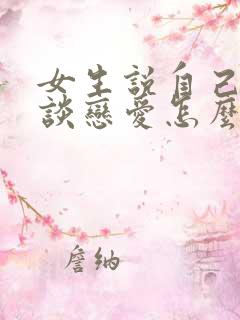 女生說自己
談戀愛怎麼
詹纳